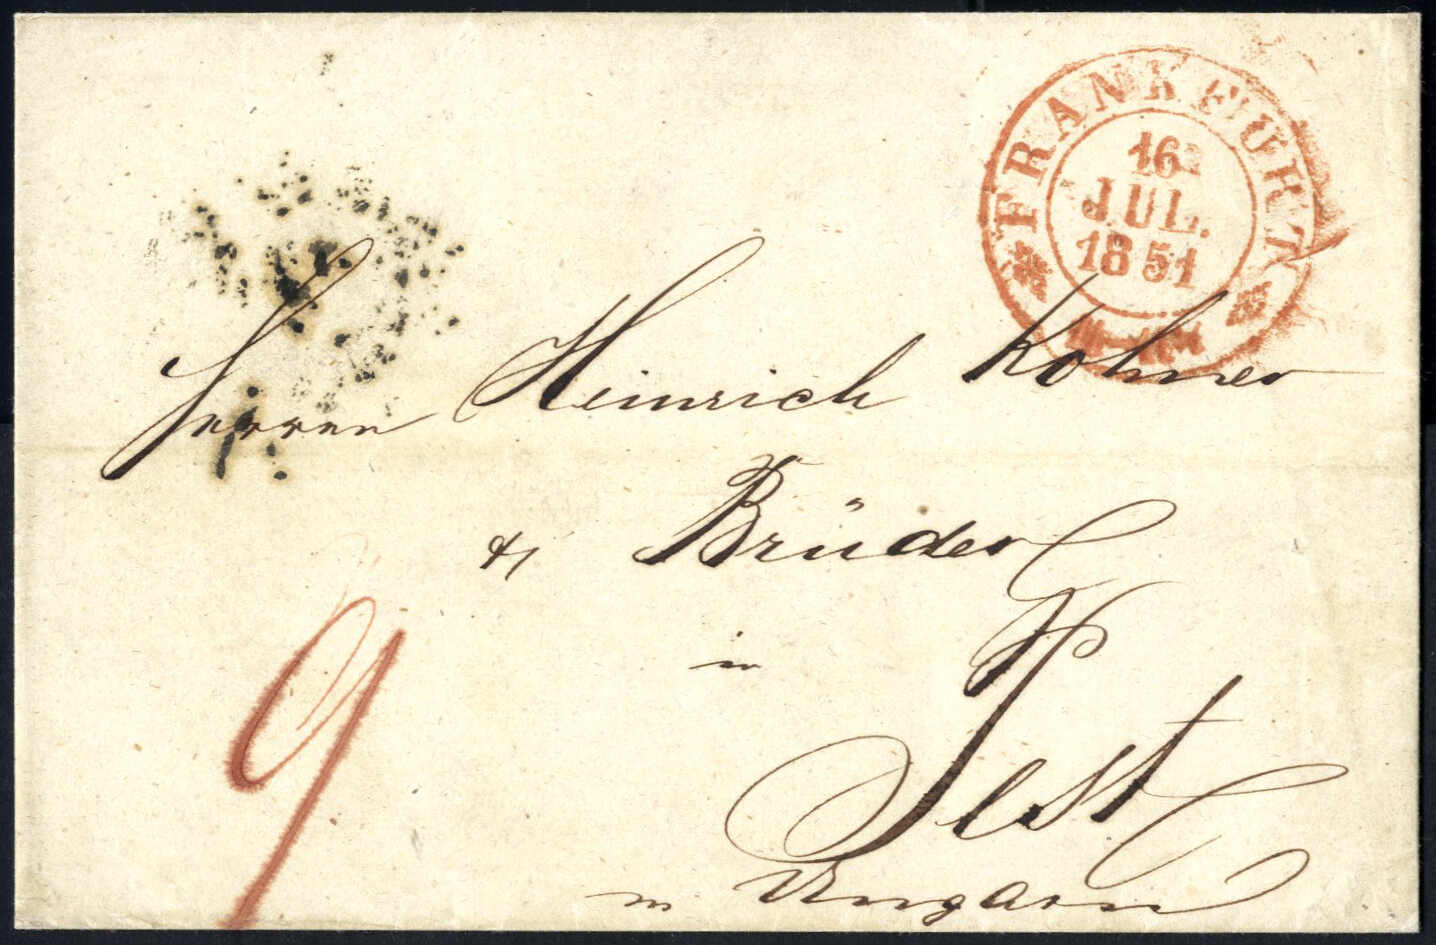 FRANKFURT
16
JUL.
1851
Herren Heinrich Kohner
& Brüder
in
Pest
in Ungarn
9